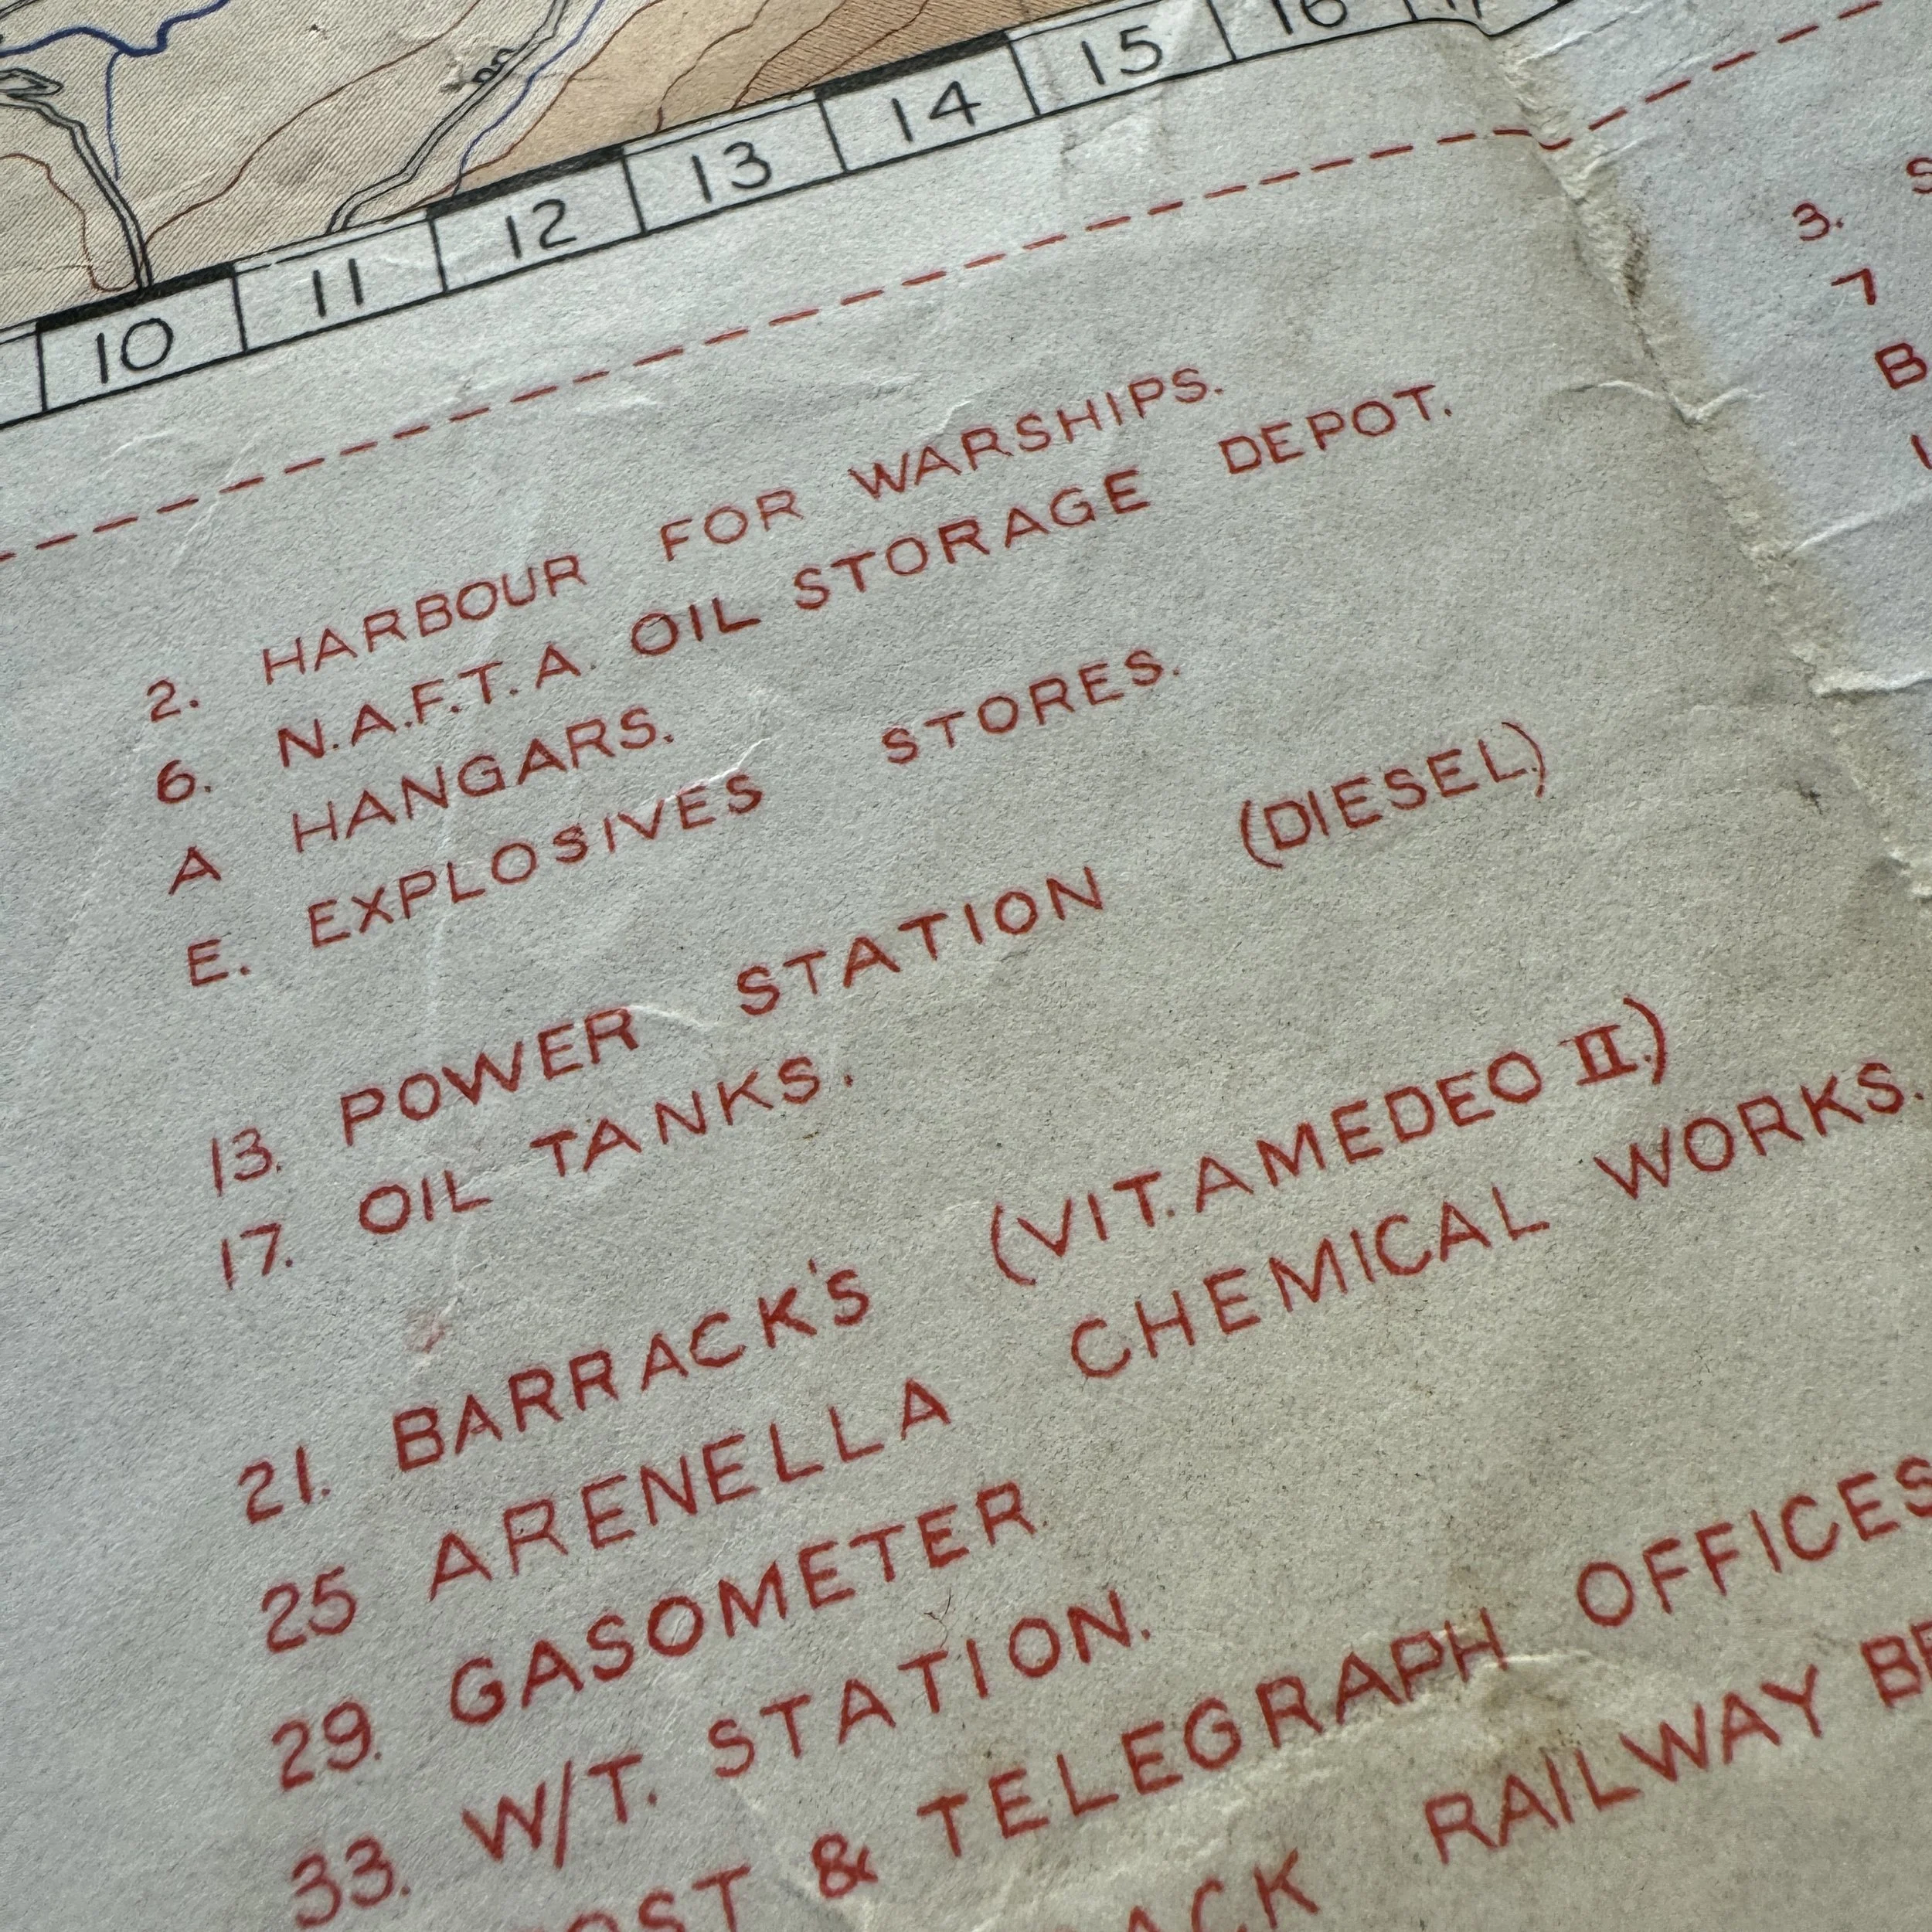 10 11 12 13 14 15 16 17
2. HARBOUR FOR WARSHIPS.
6. N.A.F.T.A. OIL STORAGE DEPOT.
A HANGARS.
E. EXPLOSIVES STORES.
13. POWER STATION (DIESEL)
17. OIL TANKS.
21. BARRACK'S (VIT. AMEDEO II.)
25 ARENELLA CHEMICAL WORKS.
29. GASOMETER
33. W/T. STATION.
& TELEGRAPH OFFICES
RAILWAY
3.
7
B